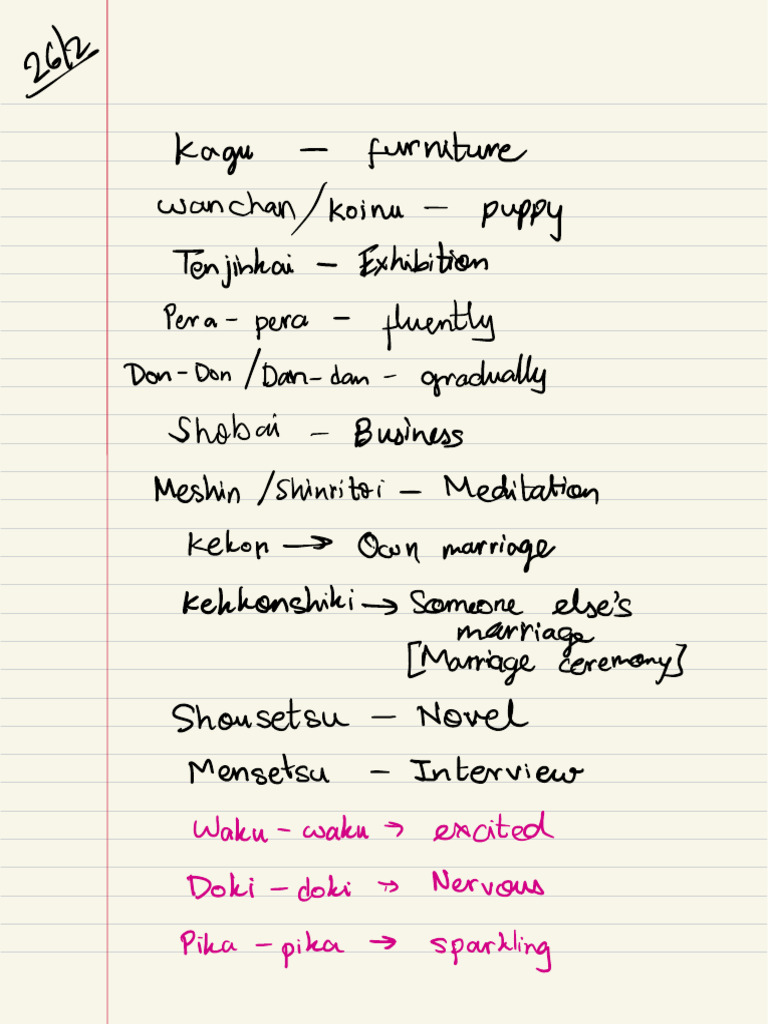 26/2
Kagu - furniture
wanchan/koinu - puppy
Tenjinkai - Exhibition
Pera - pera - fluently
Don-Don/Dan-dan - gradually
Shobai - Business
Meshin /Shinritsi - Meditation
Kekon → Own marriage
Kekkonshiki → Someone else's
marriage
[Marriage ceremony]
Shousetsu - Novel
Mensetsu - Interview
Waku - waku → excited
Doki - doki → Nervous
Pika - pika → sparkling